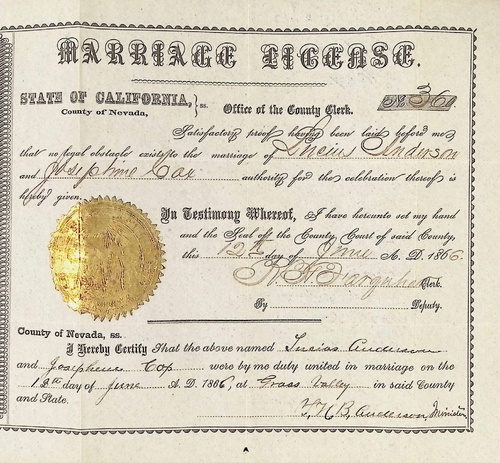 MARRIAGE LICENSE.
STATE OF CALIFORNIA, } ss.
County of Nevada,
Office of the County Clerk.
No. 360
Satisfactory proof having been laid before me
that no legal obstacle exists to the marriage of Lucius Anderson
and Josephine Cox authority for the celebration thereof is
hereby given.
In Testimony Whereof, I have hereunto set my hand
and the Seal of the County Court of said County,
this 12th day of June A. D. 1866.
Clerk.
By Deputy.
County of Nevada, ss.
I Hereby Certify That the above named Lucius Anderson
and Josephine Cox were by me duly united in marriage on the
day of June A. D. 1866, at Grass Valley in said County
and State.
B. Anderson, Minister